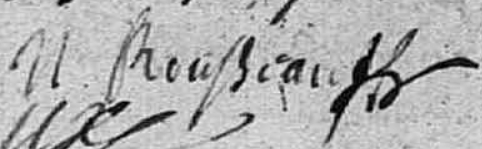 N Rousseau